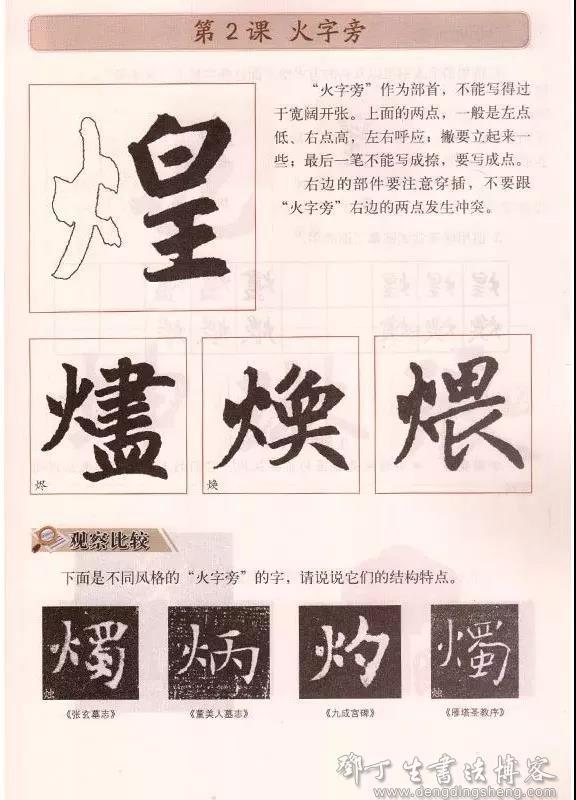 第2课 火字旁
煌
“火字旁”作为部首，不能写得过
于宽阔开张。上面的两点，一般是左点
低、右点高，左右呼应；撇要立起来一
些；最后一笔不能写成捺，要写成点。
右边的部件要注意穿插，不要跟
“火字旁”右边的两点发生冲突。
燼 焕 煨
烬 焕
观察比较
下面是不同风格的“火字旁”的字，请说说它们的结构特点。
燭 炳 灼 燭
烛 烛
《张玄墓志》 《董美人墓志》 《九成宫碑》 《雁塔圣教序》
邓丁生书法博客
www.dengdingsheng.com